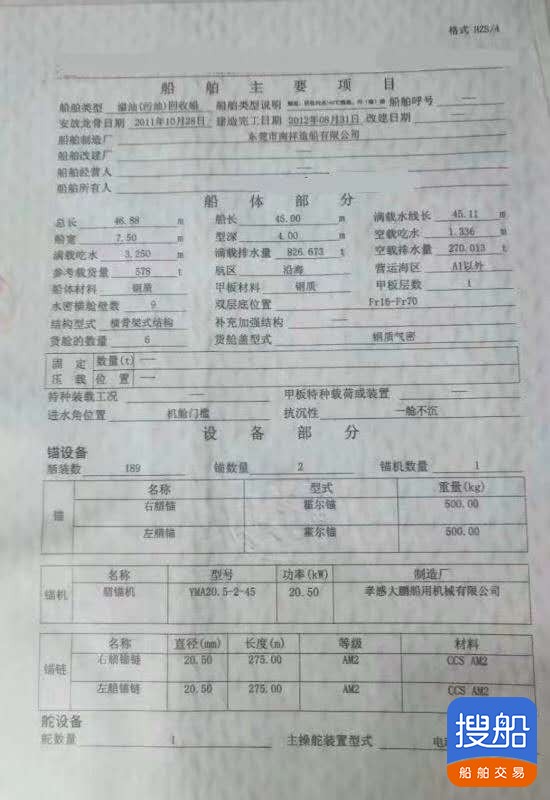 格式 HZS/4
船舶主要项目
船舶类型 溢油(污油)回收船 船舶类型说明 船舶呼号 —
安放龙骨日期 2011年10月28日 建造完工日期 2012年08月31日 改建日期 —
船舶制造厂 东莞市南祥造船有限公司
船舶改建厂 —
船舶经营人 —
船舶所有人
船体部分
总长 46.88 m 船长 45.00 m 满载水线长 45.11 m
船宽 7.50 m 型深 4.00 m 空载吃水 1.336 m
满载吃水 3.250 m 满载排水量 826.673 t 空载排水量 270.013 t
参考载货量 578 t 航区 沿海 营运海区 A1以外
船体材料 钢质 甲板材料 钢质 甲板层数 1
水密横舱壁数 9 双层底位置 Fr15-Fr70
结构型式 横骨架式结构 补充加强结构 —
货舱的数量 6 货舱盖型式 钢质气密
固定压载 数量(t) —
位置 —
特种装载工况 — 甲板特种载荷或装置 —
进水角位置 机舱门槛 抗沉性 一舱不沉
设备部分
锚设备
舾装数 189 锚数量 2 锚机数量 1
锚 名称 型式 重量(kg)
右艏锚 霍尔锚 500.00
左艏锚 霍尔锚 500.00
锚机 名称 型号 功率(kW) 制造厂
艏锚机 YMA20.5-2-45 20.50 孝感大鹏船用机械有限公司
锚链 名称 直径(mm) 长度(m) 等级 材料
右艏锚链 20.50 275.00 AM2 CCS AM2
左艏锚链 20.50 275.00 AM2 CCS AM2
舵设备
舵数量 1 主操舵装置型式 电动
搜船
船舶交易